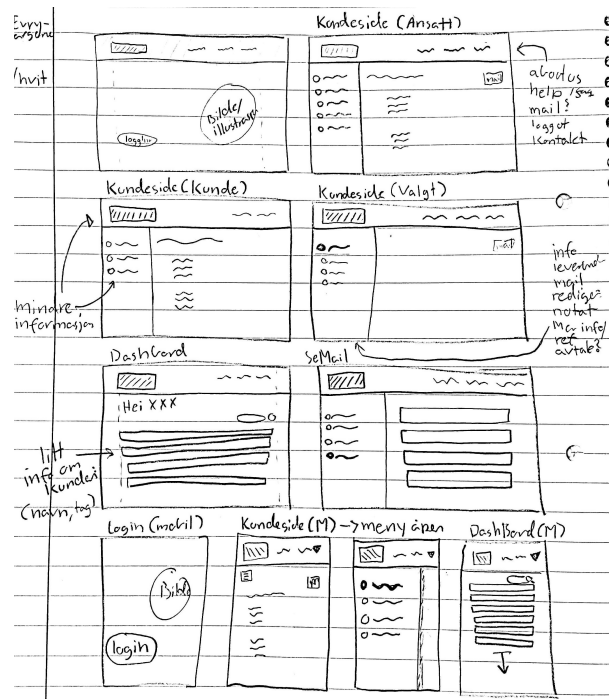 Kundeside (Ansatt)
/hvit
Bilde/
illustrasjon
logg inn
mail
about us
help
mail?
loggut
Kontakt
Kundeside (Kunde)
Kundeside (Valgt)
mindre
informasjon
mail
info
mail
notat
Mer info/
ref
avtale?
Dashbord
Se Mail
Hei XXX
litt
info om
kunder
(navn, tag)
Login (mobil)
Kundeside (M) -> meny åpen
Dashbord (M)
Bilde
login